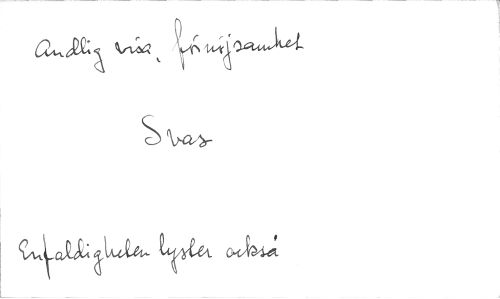 Andlig visa, förnöjsamhet
Svas
Enfaldigheten lyster också